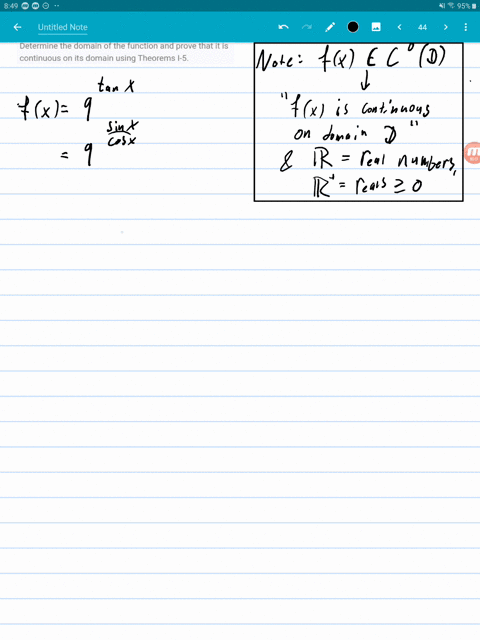 8:49
95%
Untitled Note
44
Determine the domain of the function and prove that it is
continuous on its domain using Theorems I-5.
f(x) = 9^tan x
= 9^sin x/cos x
Note: f(x) ∈ C⁰(D)
↓
"f(x) is continuous
on domain D"
& ℝ = real numbers,
ℝ⁺ = reals ≥ 0